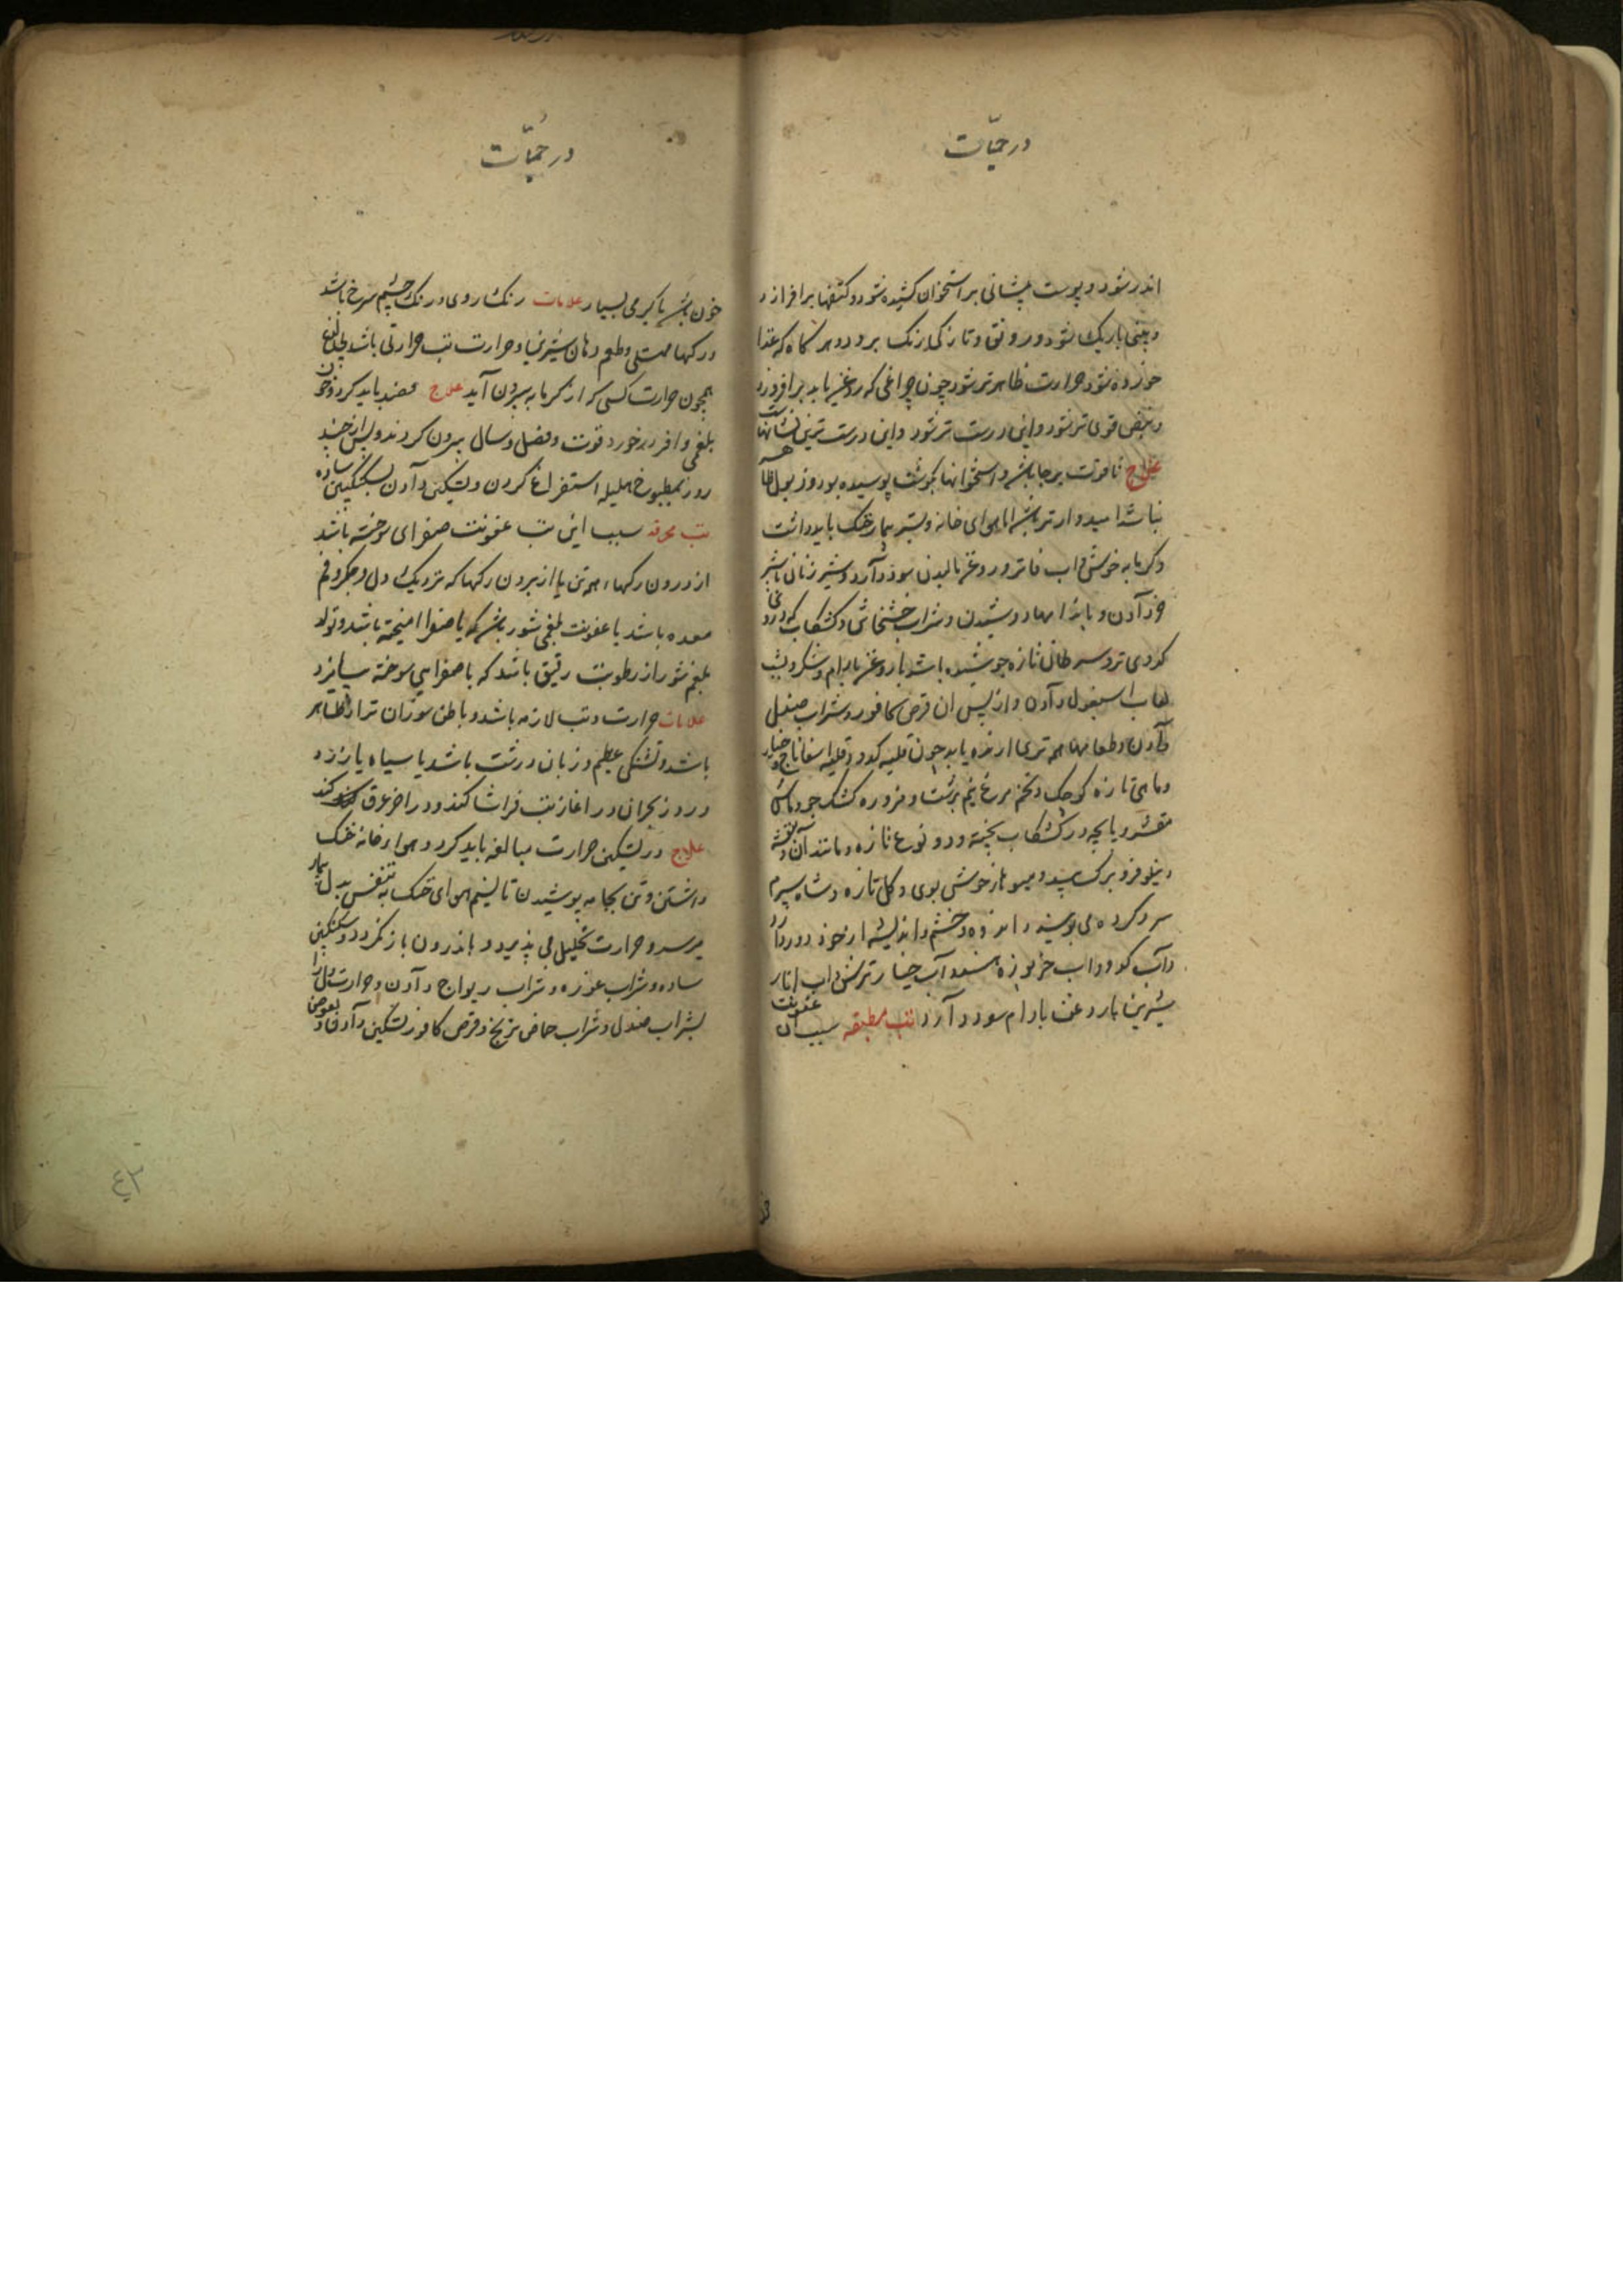 در حمیّات
اندر شود و پوست پیشانی بر استخوان کشیده شود و کتفها برافرازد
و بینی باریک شود و رونق و تازگی از رنگ برود و هر گاه که غذا
خورده شود حرارت ظاهرتر شود چون چراغی که روغن یابد برافروزد
و نبض قوی تر شود و این درست تر شود و این درست ترین نشانهاست
علاج تا قوت بر جا باشد و استخوانها بکوشت پوسیده بود و در بول
نباشد امیدوارتر باشد اما هوای خانه و بستر بیمار خنک باید داشت
و کرمابه خوش و آب فاتر و روغن مالیدن سود دارد و شیر زنان یا شیر
خر دادن و شراب خشخاش و کشکاب که در وی
کدوی تر و سرطان تازه جوشیده باشد با روغن بادام و شکر و بشب
لعاب اسبغول دادن و از پس آن قرص کافور و شراب صندل
دادن و طعامها همه تری فزاینده باید چون قلیه کدو و قلیه اسفاناج و خیار
و ماهی تازه کوچک و تخم مرغ نیم برشت و مزوره کشک جو و ماش
مقشر و پاچه در کشکاب پخته و دوغ تازه و مانند آن و بنفشه
و نیلوفر و برک بید و میوهاء خوش بوی و کل تازه و شاه سپرم
سرد کرده می بوسید و اندوه و خشم و اندیشه از خود دور دارد
و آب کدو و آب خربوزه هندو آب خیار ترش و آب انار
شیرین با روغن بادام سود دارد تب مطبقه سبب آن عفونت
در حمیّات
خون باشد یا کرمی بسیار علامات رنک روی و رنک چشم سرخ باشد
و رکها ممتلی و طعم دهان شیرین و حرارت تب حرارتی باشد
همچون حرارت کسی که از کرمابه بیرون آید علاج فصد باید کرد و خون
بلغمی وافر در خورد قوت و فصل و سال بیرون کردند و پس از چند
روز بمطبوخ هلیله استفراغ کردن و تسکین دادن بسکنکبین ساده
تب محرقه سبب این تب عفونت صفرای سوخته باشد
از درون رکهاء همه تن یا از بیرون رکها که نزدیک دل و جکر و فم
معده باشد یا عفونت بلغمی شور باشد که با صفرا آمیخته باشد و تولد
بلغم شور از رطوبت رقیق باشد که با صفرای سوخته بیامیزد
علامات حرارت و تب لازم باشد و باطن سوزان تر از ظاهر
باشد و تشنکی عظیم و زبان درشت باشد یا سیاه یا زرد
و روز بحران در آغاز تب فراشا کند و در آخر عرق کند
علاج در تسکین حرارت مبالغه باید کرد و هواء خانه خنک
داشتن و تن بجامه پوشیدن تا نسیم هوای خنک به تنفس بدل بیمار
میرسد و حرارت تحلیل می پذیرد و باندرون باز نکردد و سکنکبین
ساده و شراب غوره و شراب ریواج دادن و حرارت دل را
بشراب صندل و شراب حماض ترنج و قرص کافور تسکین دادن و
٤٣